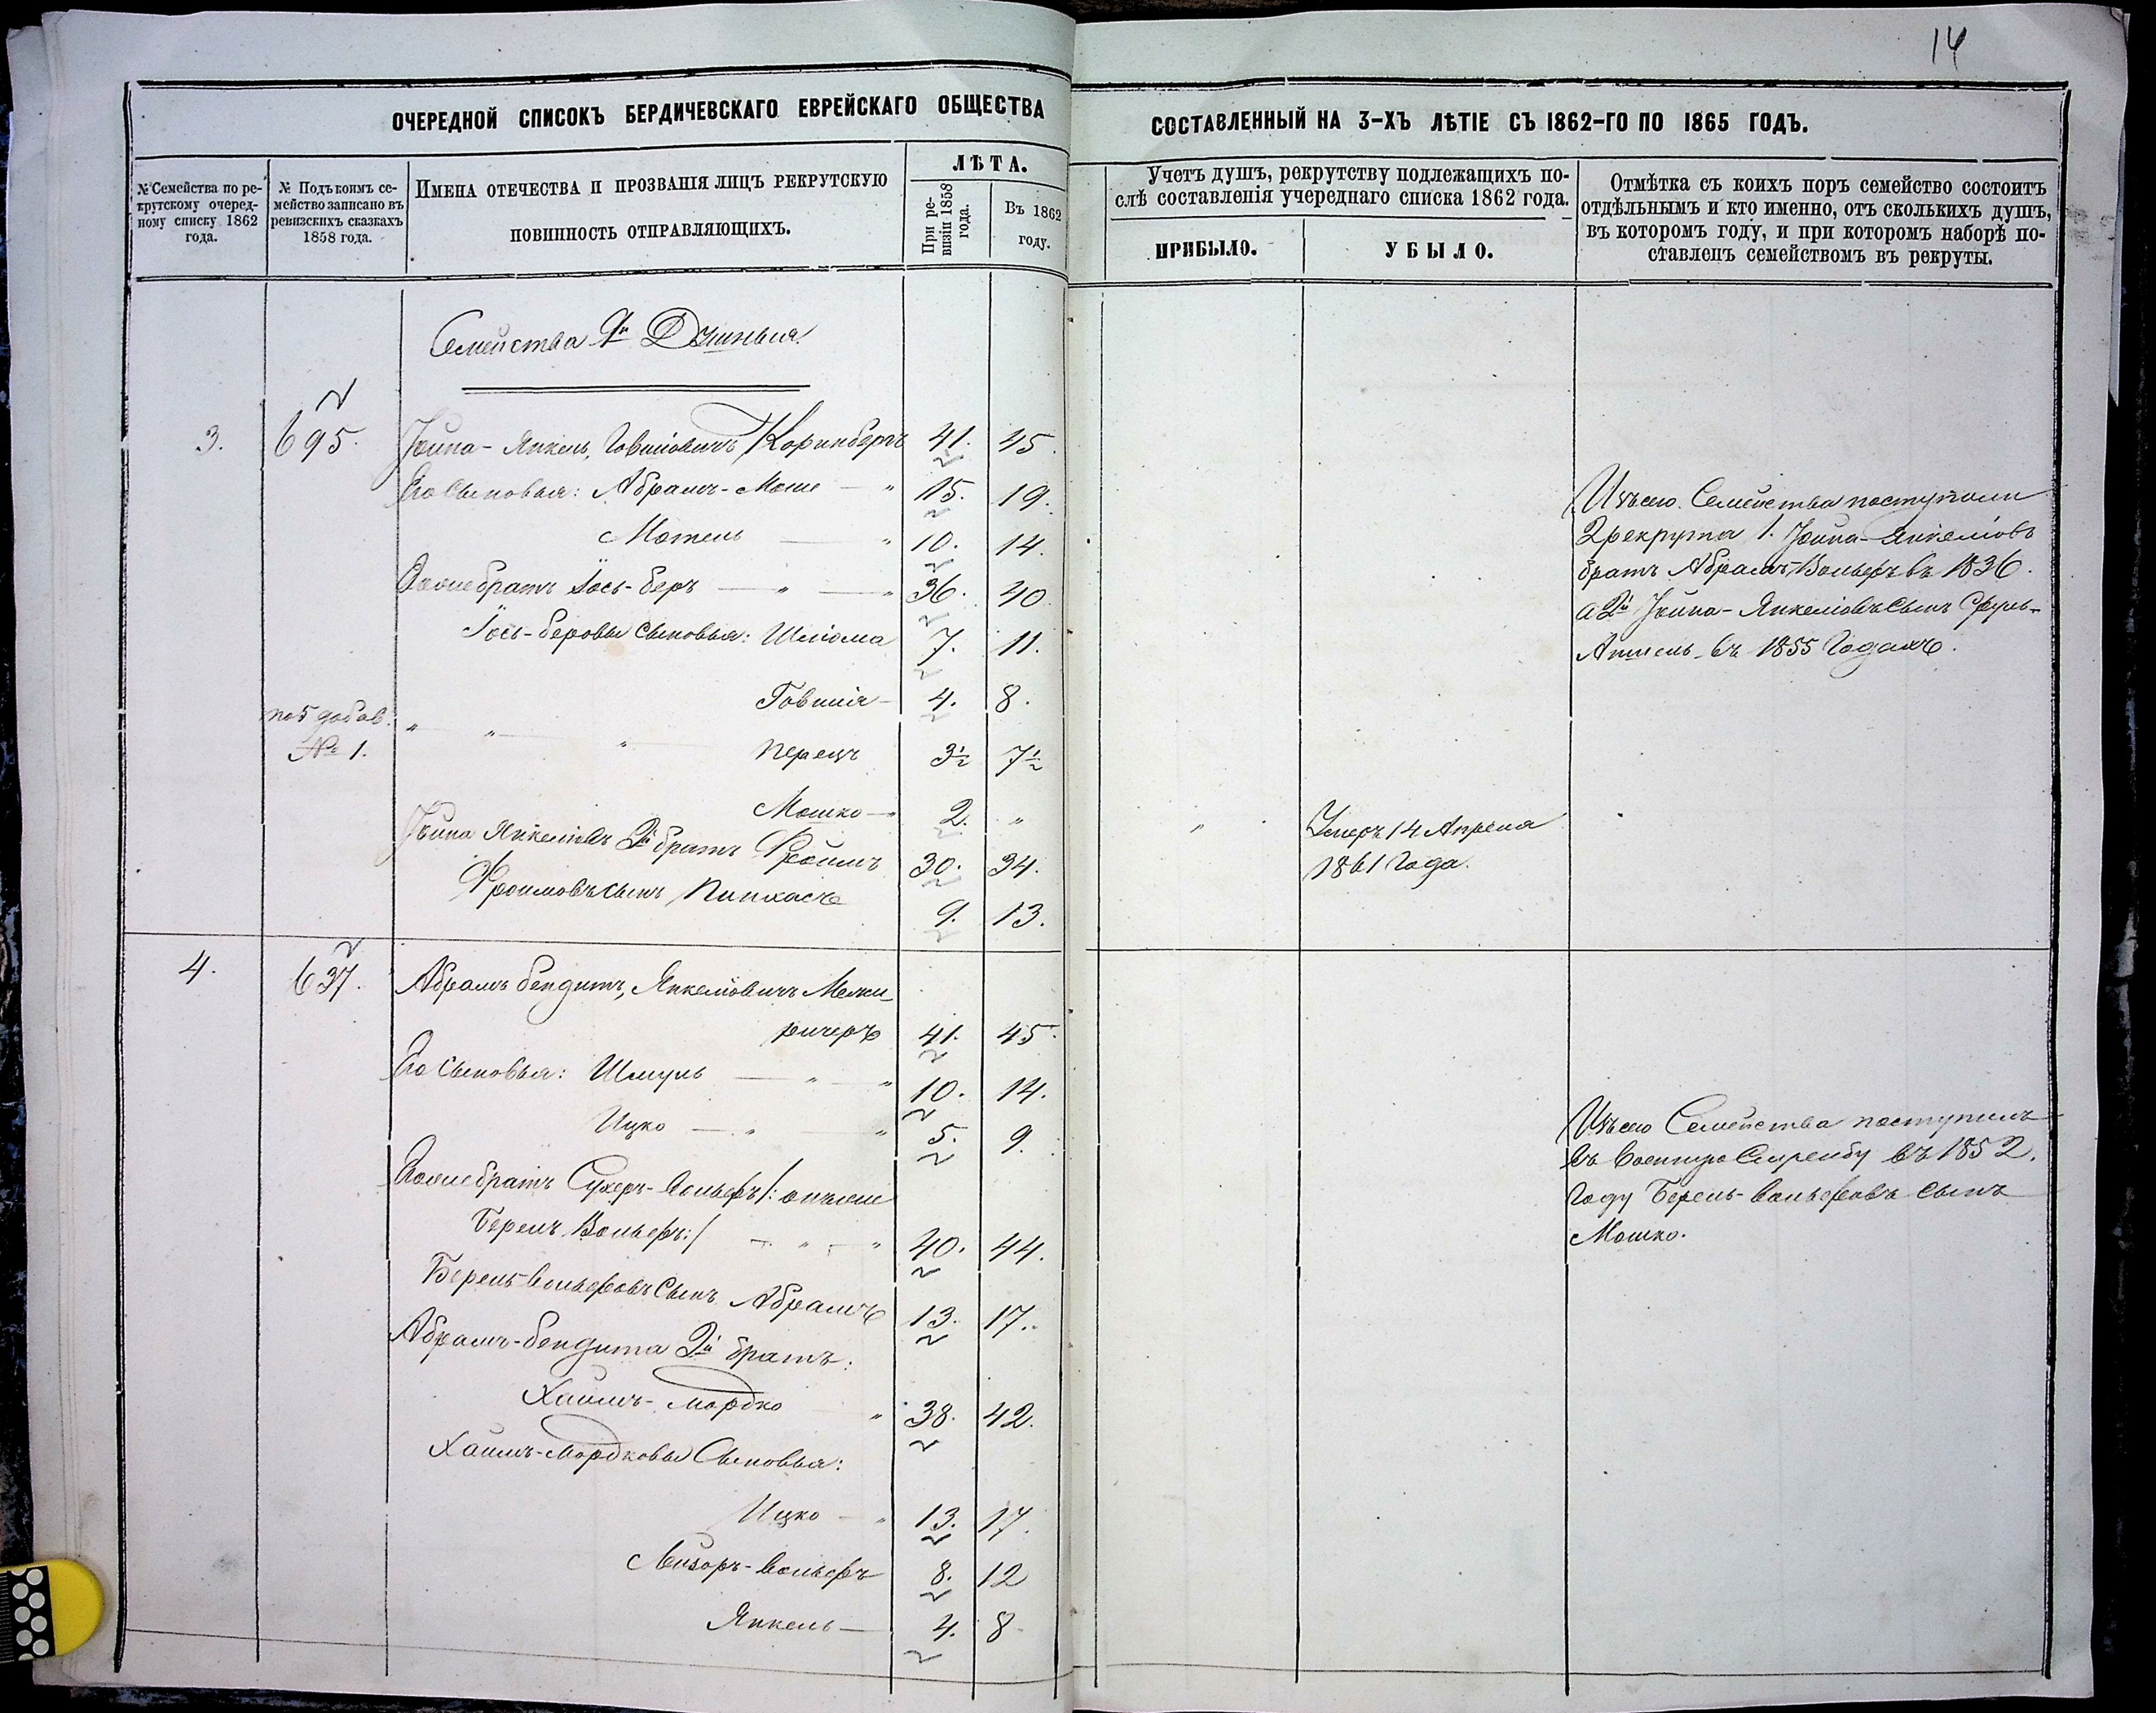 14
ОЧЕРЕДНОЙ СПИСОКЪ БЕРДИЧЕВСКАГО ЕВРЕЙСКАГО ОБЩЕСТВА
СОСТАВЛЕННЫЙ НА 3-ХЪ ЛѢТІЕ СЪ 1862-ГО ПО 1865 ГОДЪ.
№ Семейства по ре-
крутскому очеред-
ному списку 1862
года.
№ Подъ коимъ се-
мейство записано въ
ревизскихъ сказкахъ
1858 года.
ИМЕНА ОТЕЧЕСТВА И ПРОЗВАНІЯ ЛИЦЪ РЕКРУТСКУЮ
ПОВИННОСТЬ ОТПРАВЛЯЮЩИХЪ.
ЛѢТА.
При ре-
визіи 1858
года.
Въ 1862
году.
Учетъ душъ, рекрутству подлежащихъ по-
слѣ составленія учереднаго списка 1862 года.
ПРИБЫЛО.
УБЫЛО.
Отмѣтка съ коихъ поръ семейство состоитъ
отдѣльнымъ и кто именно, отъ сколькихъ душъ,
въ котором году, и при котором наборѣ по-
ставленъ семействомъ въ рекруты.
Семейства
3. 695. Іойна-Янкель, Говшіовичъ Коринбергъ 41. 45.
Его Сыновья: Абрамъ-Моше — " 15. 19.
Мотель — " 10. 14.
братъ Іось-беръ — " — " 36. 40
Іось-беровы Сыновья: Шліома 7. 11.
Говшія — 4. 8.
по 5 добав.
№ 1. " " " Перецъ 3½ 7½
Мошко — " 2. "
Іойна Янкеліовъ 2й братъ Фроимъ 30. 34.
Фроимовъ сынъ Пинхасъ 9. 13.
Изъ сего Семейства поступили
2 рекрута 1. Іойна-Янкеліовъ
братъ Абрамъ Вольфъ въ 1836.
а 2й Іойна-Янкеліовъ сынъ Сруль-
Аншель въ 1855 Годахъ.
" Умеръ 14 Апрѣля
1861 Года.
4. 637. Абрамъ бендитъ, Янкеліовичъ Межи-
ричеръ 41. 45.
Его Сыновья: Шмуль — " — " 10. 14.
Ицко — " — " 5. 9.
братъ Сухеръ-Вольфъ /: онъ же
Берель Вольфъ :/ — " — " 40. 44.
Берель-Вольфовъ Сынъ Абрамъ 13. 17.
Абрамъ-бендита 2й братъ:
Хаимъ-Мордко " 38. 42.
Хаимъ-Мордковы Сыновья:
Ицко — " 13. 17.
Лейзоръ-Вольфъ 8. 12
Янкель — 4. 8
Изъ сего Семейства поступилъ
въ Военную Службу въ 1852.
Году Берель-Вольфовъ сынъ
Мошко.